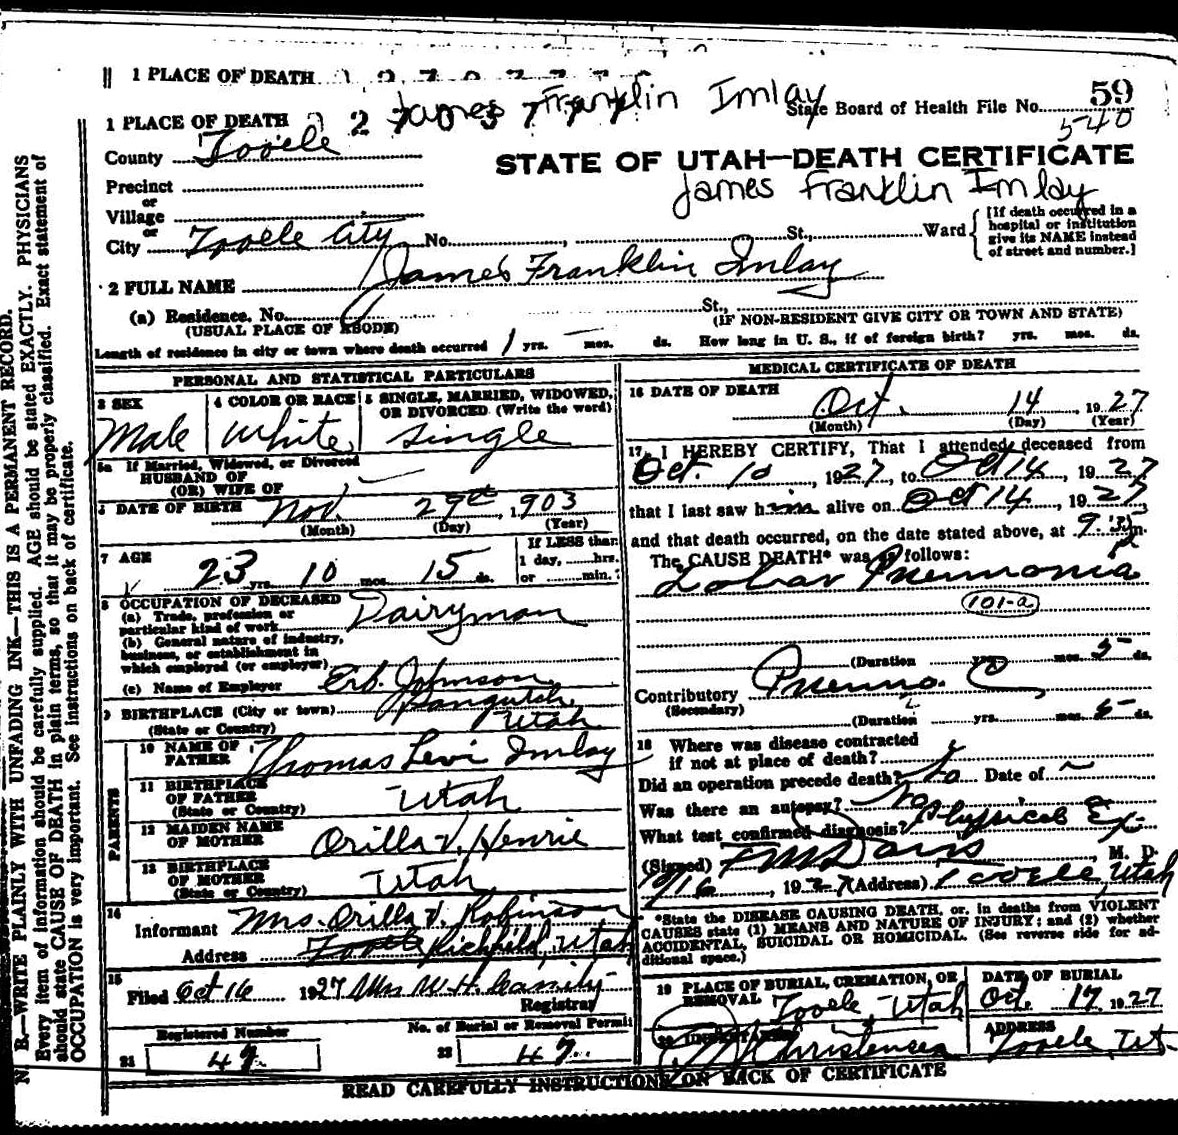 1 PLACE OF DEATH
James Franklin Imlay
1 PLACE OF DEATH
State Board of Health File No. 59
540
County Tooele
STATE OF UTAH—DEATH CERTIFICATE
James Franklin Imlay
Precinct
or
Village
or
City Tooele City No. , St., Ward
[If death occurred in a hospital or institution give its NAME instead of street and number.]
2 FULL NAME James Franklin Imlay
(a) Residence. No. St.,
(USUAL PLACE OF ABODE) (IF NON-RESIDENT GIVE CITY OR TOWN AND STATE)
Length of residence in city or town where death occurred 1 yrs. — mos. ds. How long in U. S., if of foreign birth? yrs. mos. ds.
PERSONAL AND STATISTICAL PARTICULARS
3 SEX
Male
4 COLOR OR RACE
White
5 SINGLE, MARRIED, WIDOWED, OR DIVORCED (Write the word)
Single
5a If Married, Widowed, or Divorced
HUSBAND OF
(OR) WIFE OF
6 DATE OF BIRTH Nov. 29th, 1903
(Month) (Day) (Year)
7 AGE
23 yrs. 10 mos. 15 ds.
If LESS than
1 day, hrs.
or min.
8 OCCUPATION OF DECEASED
(a) Trade, profession or
particular kind of work Dairyman
(b) General nature of industry,
business, or establishment in
which employed (or employer)
(c) Name of Employer Erb. Johnson
9 BIRTHPLACE (City or town) Panguitch
(State or Country) Utah
PARENTS
10 NAME OF
FATHER Thomas Levi Imlay
11 BIRTHPLACE
OF FATHER
(State or Country) Utah
12 MAIDEN NAME
OF MOTHER Orilla V. Henrie
13 BIRTHPLACE
OF MOTHER
(State or Country) Utah
14
Informant Mrs. Orilla V. Robinson
Address Tooele Richfield, Utah
15
Filed Oct 16 1927 Mrs W. H.
Registrar
Registered Number
No. of Burial or Removal Permit
21 49
22 49
MEDICAL CERTIFICATE OF DEATH
16 DATE OF DEATH
Oct. 14, 1927
(Month) (Day) (Year)
17 I HEREBY CERTIFY, That I attended deceased from
Oct. 10, 1927, to Oct 14, 1927
that I last saw him alive on Oct 14, 1927
and that death occurred, on the date stated above, at 9.35 p m.
The CAUSE DEATH* was as follows:
Lobar Pneumonia
101-a
(Duration yrs. mos. 5 ds.
Contributory Pneumo. C
(Secondary)
(Duration yrs. mos. 5 ds.
18 Where was disease contracted
if not at place of death?
Did an operation precede death? No Date of ~
Was there an autopsy? No
What test confirmed diagnosis? Physical Ex.
(Signed) Davis, M. D.
, 1927 (Address) Tooele, Utah
*State the DISEASE CAUSING DEATH, or, in deaths from VIOLENT
CAUSES state (1) MEANS AND NATURE OF INJURY; and (2) whether
ACCIDENTAL, SUICIDAL OR HOMICIDAL. (See reverse side for ad-
ditional space.)
19 PLACE OF BURIAL, CREMATION, OR
REMOVAL Tooele, Utah
DATE OF BURIAL
Oct. 17 1927
20 UNDERTAKER
Christensen
ADDRESS
Tooele, Ut.
READ CAREFULLY INSTRUCTIONS ON BACK OF CERTIFICATE
N. B.—WRITE PLAINLY WITH UNFADING INK—THIS IS A PERMANENT RECORD.
Every item of information should be carefully supplied. AGE should be stated EXACTLY. PHYSICIANS
should state CAUSE OF DEATH in plain terms, so that it may be properly classified. Exact statement of
OCCUPATION is very important. See instructions on back of certificate.